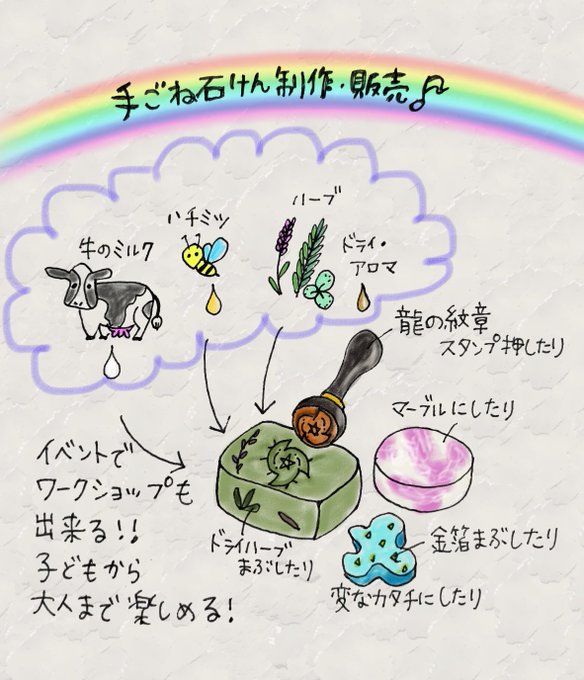 手ごね石けん制作・販売♫
牛のミルク
ハチミツ
ハーブ
ドライ・
アロマ
龍の紋章
スタンプ押したり
マーブルにしたり
ドライハーブ
まぶしたり
金箔まぶしたり
変なカタチにしたり
イベントで
ワークショップも
出来る!!
子どもから
大人まで楽しめる!